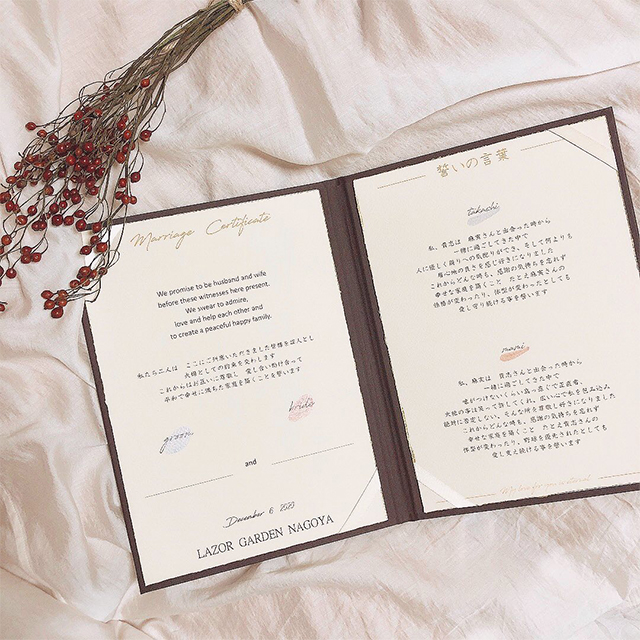 Marriage Certificate
We promise to be husband and wife
before these witnesses here present.
We swear to admire,
love and help each other and
to create a peaceful happy family.
私たち二人は ここにご列席いただきました皆様を証人とし
夫婦としての約束を交わします
これからはお互いに尊敬し 愛し合い助け合って
平和で幸せに満ちた家庭を築くことを誓います
groom
bride
and
December 6 2023
LAZOR GARDEN NAGOYA
誓いの言葉
takachi
私、貴志は 麻実さんと出会った時から
一緒に過ごしてきた中で
人に優しく周りへの気配りができ、そして何よりも
居心地の良さを感じ好きになりました
これからどんな時も、感謝の気持ちを忘れず
幸せな家庭を築くこと たとえ麻実さんの
性格が変わったり、体型が変わったとしても
愛し守り続ける事を誓います
mami
私、麻実は 貴志さんと出会った時から
一緒に過ごしてきた中で
嘘がつけないくらい真っ直ぐで正直者、
失敗の事は笑って許してくれ、広い心で私を包み込み
絶対に否定しない、そんな所を尊敬し好きになりました
これからどんな時も、感謝の気持ちを忘れず
幸せな家庭を築くこと たとえ貴志さんの
体型が変わったり、野球を優先されたとしても
愛し支え続ける事を誓います